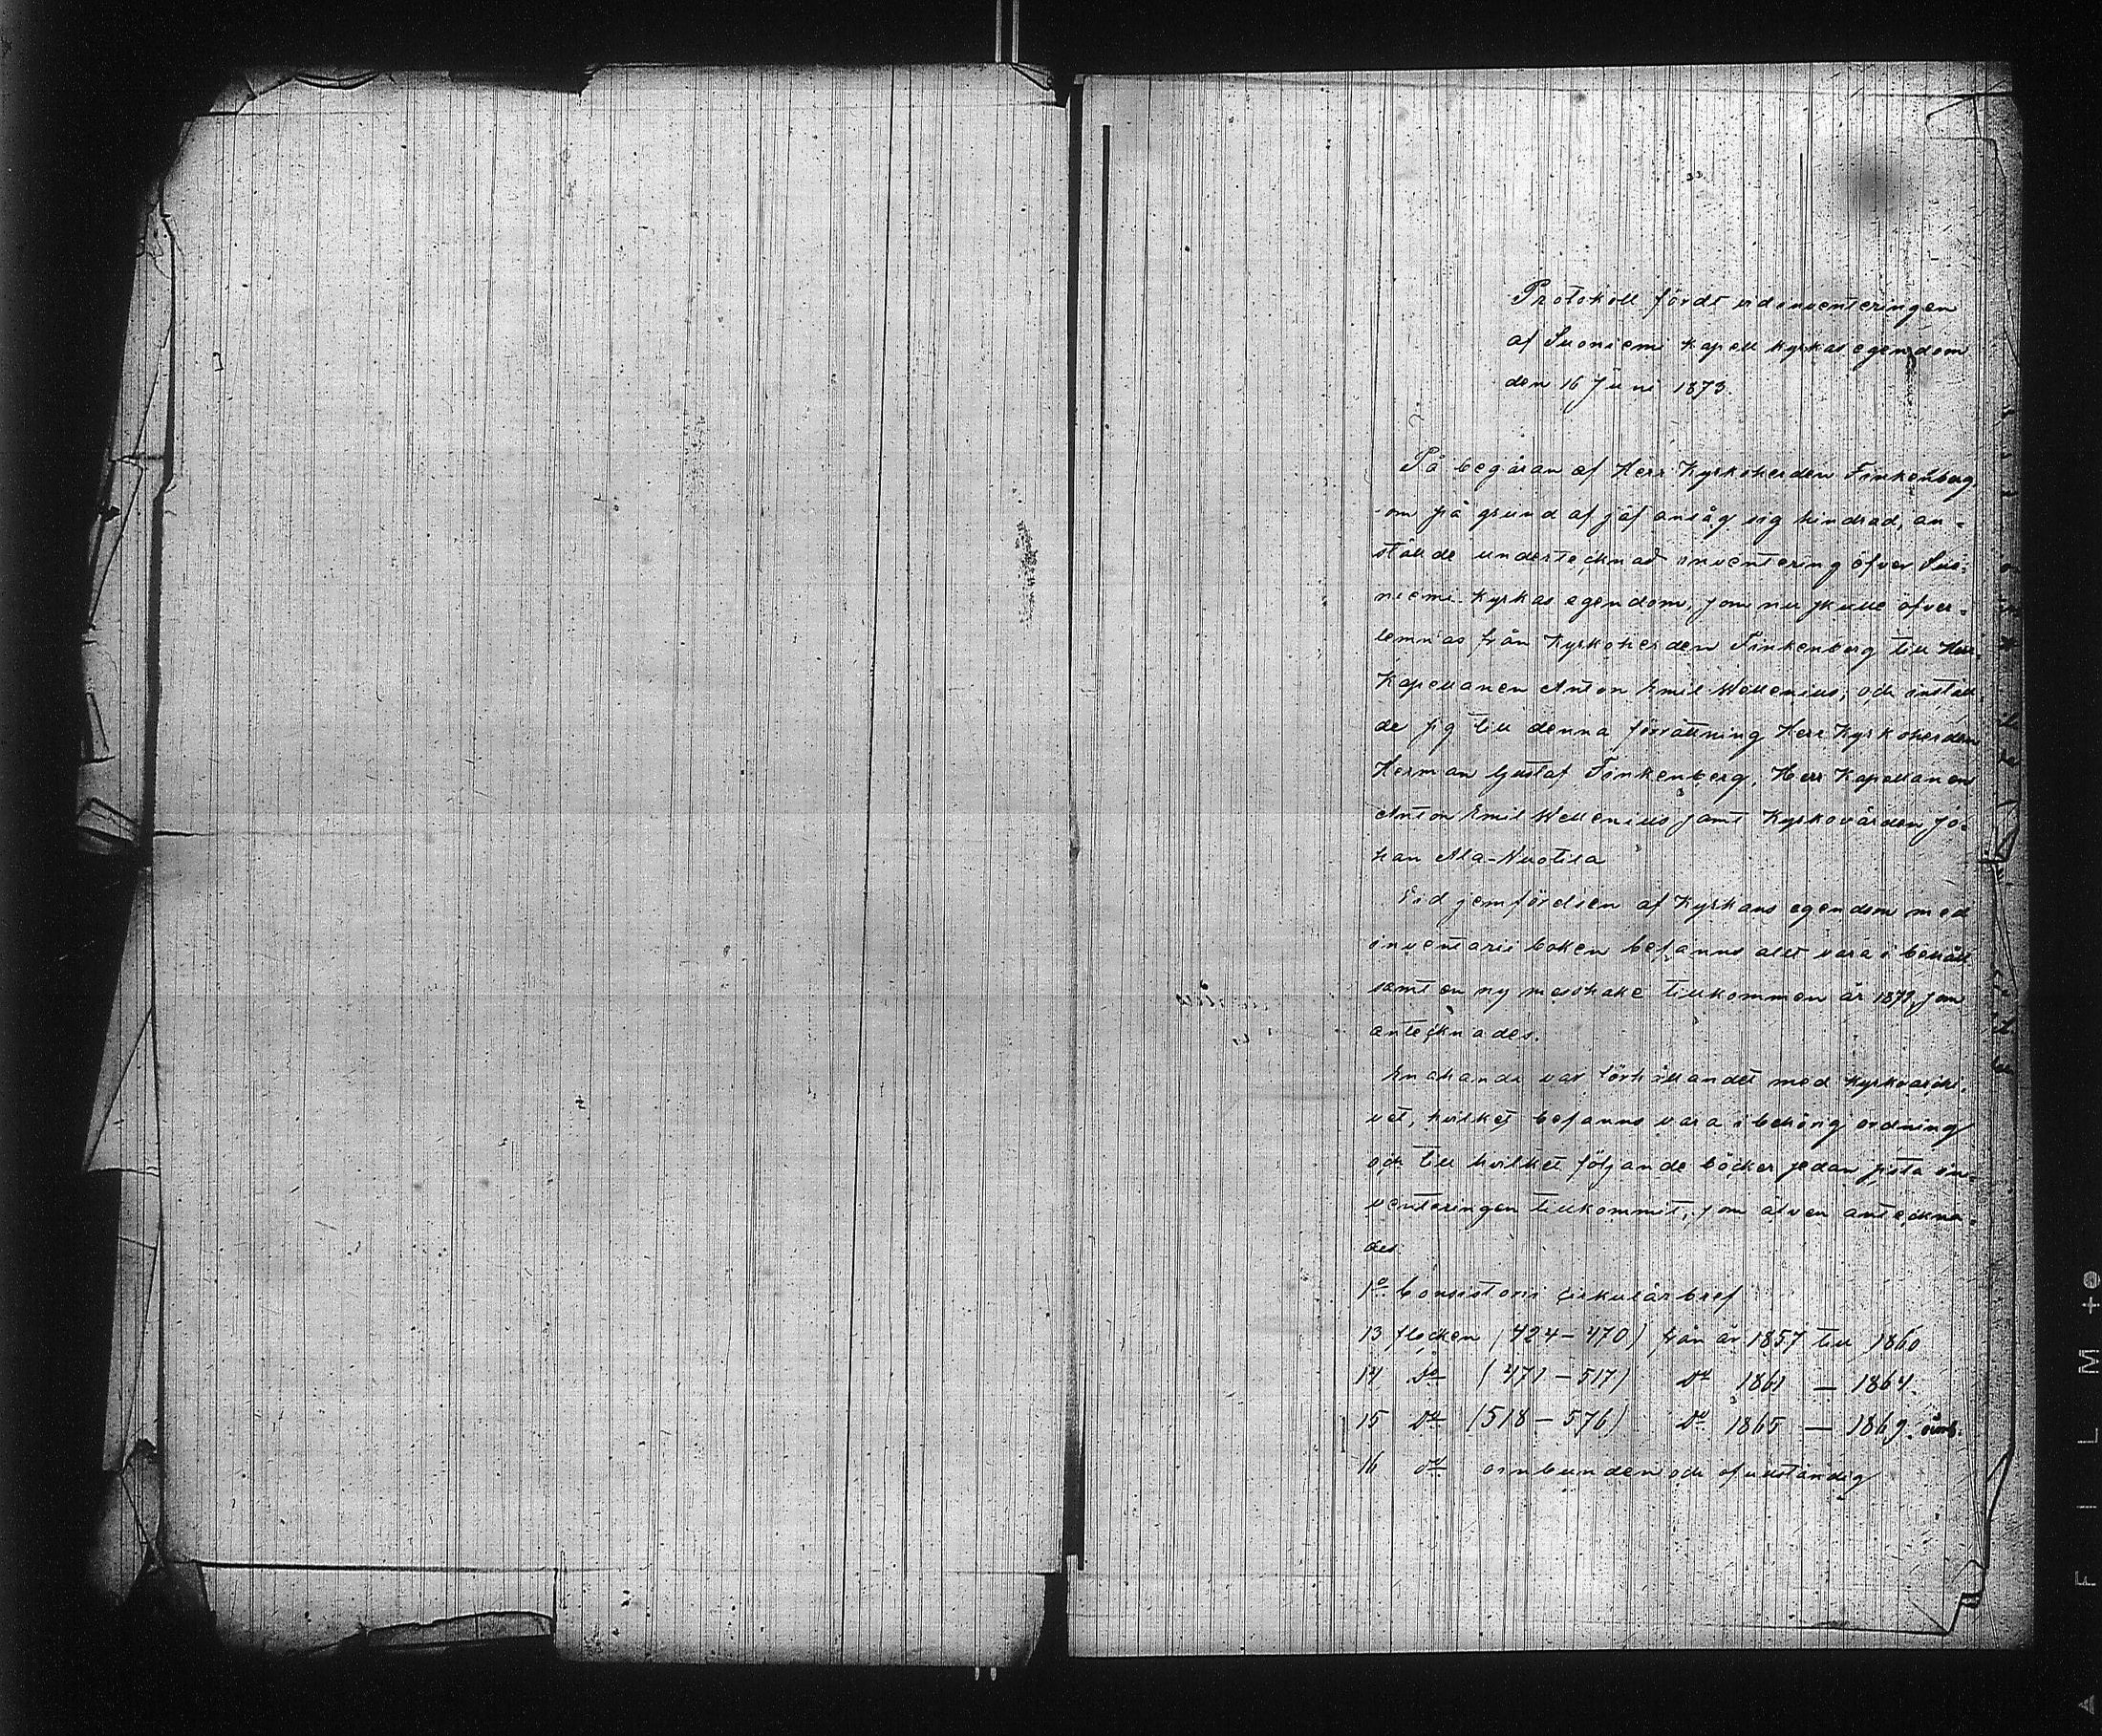 Protokoll fördt vid inventeringen
af Suoniemi Kapell kyrkas egendom
den 16 Juni 1873.
På begäran af Herr Kyrkoherden Finkenberg,
som på grund af jäf ansåg sig hindrad, an-
stälde undertecknad inventering öfver Suo-
niemi kyrkas egendom, som nu skulle öfver-
lemnas från Kyrkoherden Finkenberg till Herr
Kapellanen Anton Emil Mellenius, och instäl-
de sig till denna förrättning Herr Kyrkoherden
Herman Gustaf Finkenberg, Herr Kapellanen
Anton Emil Mellenius samt Kyrkovärden Jo-
han Ala-Kuotila
Vid jemförelsen af Kyrkans egendom med
inventarii boken befanns allt vara i behåll
samt en ny messhake tillkommen år som
antecknades.
Enahanda var förhållandet med kyrkoarchi-
vet, hvilket befanns vara i behörig ordning
och till hvilket följande böcker sedan sista in-
venteringen tillkommit, som äfven anteckna-
des.
1o Consistorii cirkulärbref
13 flocken (424-470) från år 1857 till 1860
14 do (471-517) do 1861 - 1864.
15 do (518-576) do 1865 - 1869.
16 do oinbunden och ofullständig
FILM